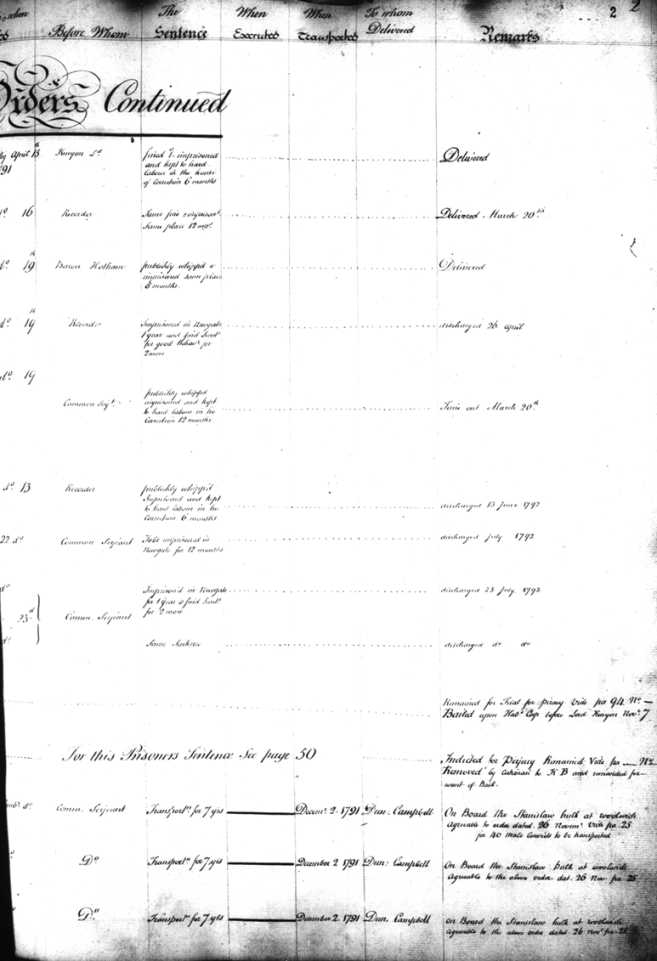 when Before Whom The Sentence When Executed When Transported To whom Delivered Remarks 2
Orders Continued
April 15th Kenyon Ld fined 1s. imprisoned Delivered
1791 and kept to hard
labour in the house
of Correction 6 months
do 16 Recorder Same fine imprisont. Delivered March 20th
Same place 12 mos.
do 19th Baron Hotham publickly whipped & Delivered
imprisoned same place
6 months.
do 19th Recorder Imprisoned in Newgate discharged 26 April
1 year and find Suretys
for good Behavr. for
2 more
do 19
Common Serjt. publickly whipped
imprisoned and kept
to hard labour in the Time out March 20th
Correction 12 months.
do 13 Recorder publickly whipp'd
Imprisoned and kept
to hard labour in the discharged 13 June 1792
Correction 6 months
22 do Common Serjeant To be imprisoned in discharged July 1792
Newgate for 12 months
do Imprison'd in Newgate discharged 23 July 1792
23d Comm. Serjeant for 1 year & find Suretys
for 2 more
do Same Sentence discharged do do
Remained for Trial for piracy Vide pa 94 No —
Bailed upon Habs. Cop before Lord Kenyon Novr. 7
For this Prisoners Sentence See page 50 Indicted for Perjury Remained Vide pa — No.
Removed by Certiorari to K B and remanded for
want of Bail.
do. Comm. Serjeant Transportn. for 7 yrs Decemr. 2. 1791 Dun. Campbell On Board the Stanislaw hulk at woolwich
Agreeable to order dated. 26 Novemr. Vide pa. 25
for 40 male Convicts to be transported
Do Transportn. for 7 yrs December 2 1791 Dun: Campbell On Board the Stanislaw hulk at woolwich
Agreeable to the above order dat. 26 Nov pa 25
Do Transportn. for 7 yrs December 2. 1791 Dun. Campbell on Board the Stanislaw hulk at woolwich
agreeable to the above order dated. 26 Novr. pa. 25